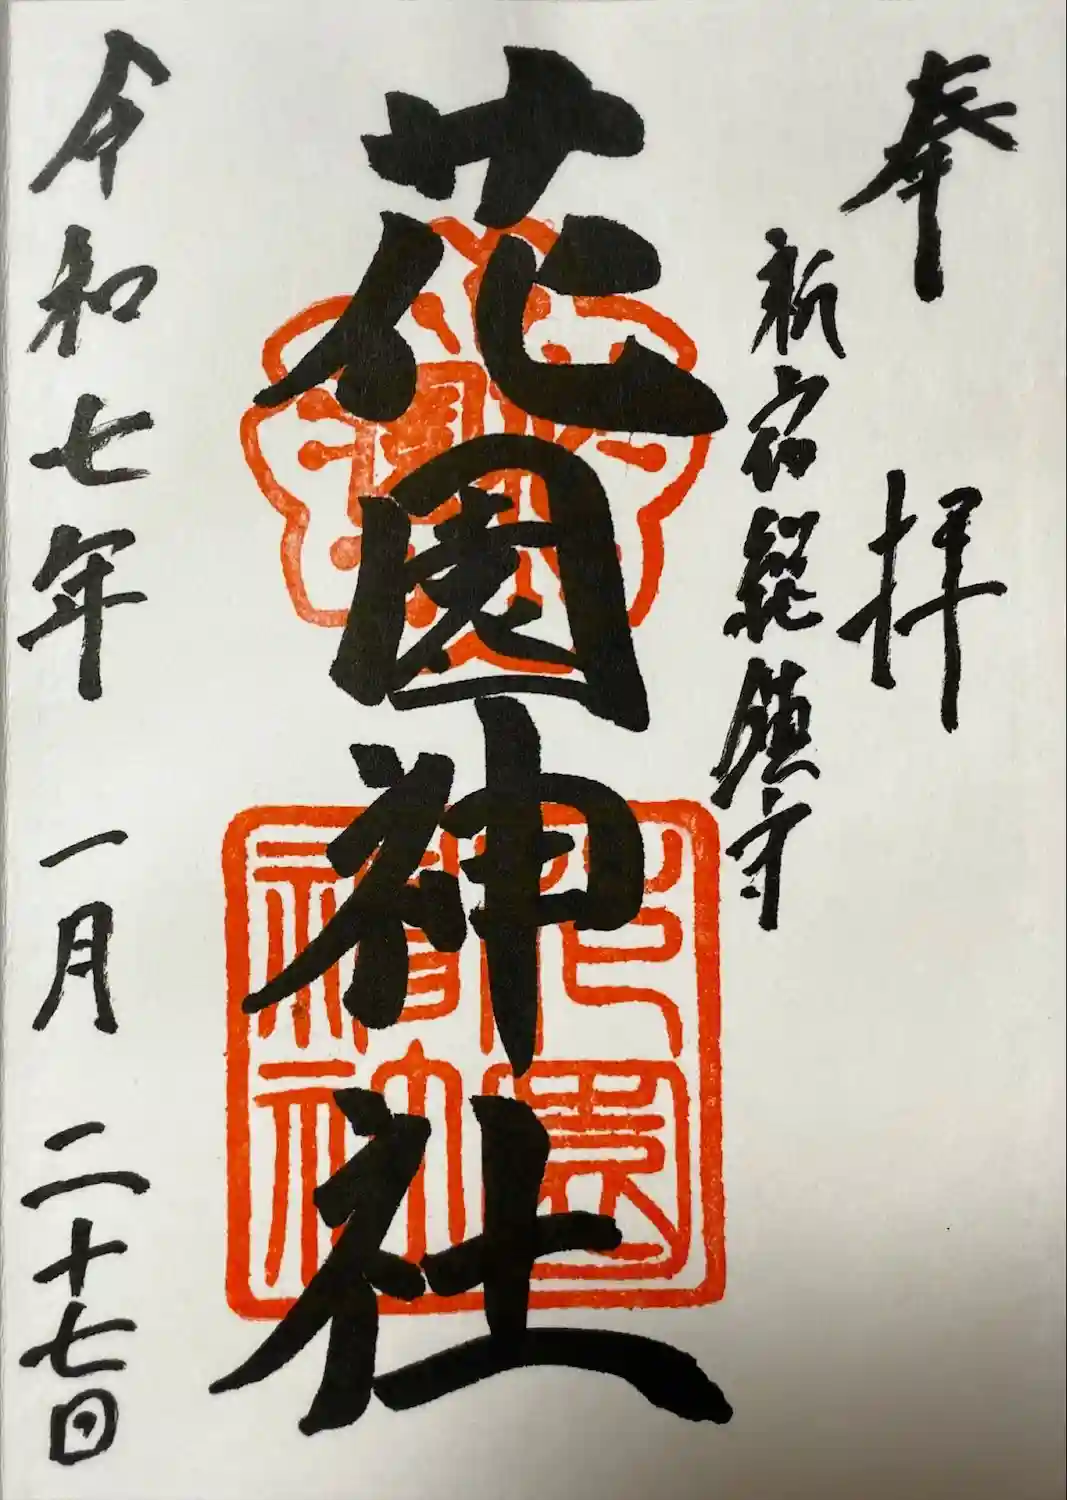 奉拝
新宿総鎮守
花園神社
令和七年一月二十七日